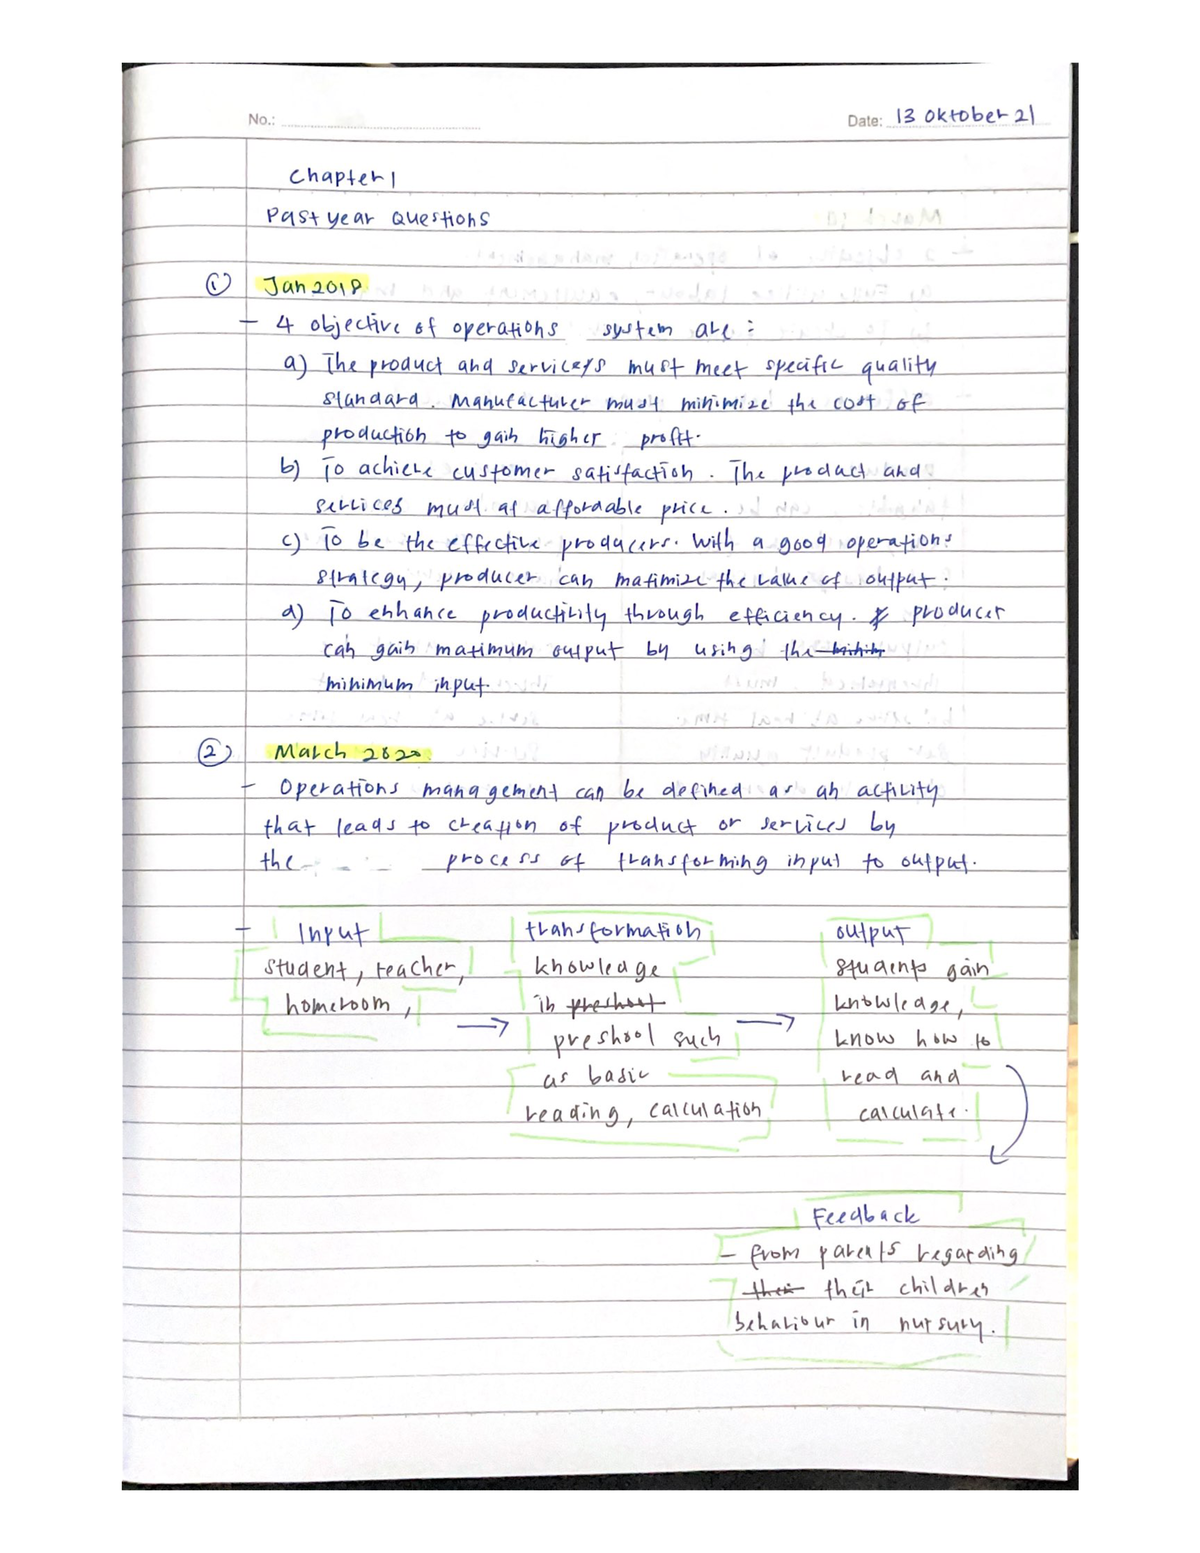 No.:
Date: 13 Oktober 21
Chapter 1
Past year Questions
① Jan 2018
- 4 objective of operations system are :
a) The product and services must meet specific quality
standard. Manufacturer must minimize the cost of
production to gain higher profit.
b) To achieve customer satisfaction. The product and
services must at affordable price.
c) To be the effective producers. With a good operations
strategy, producer can maximize the value of output.
d) To enhance productivity through efficiency. producer
can gain maximum output by using the
minimum input.
② March 2020
- Operations management can be defined as an activity
that leads to creation of product or services by
the process of transforming input to output.
- Input transformation output
student, teacher, knowledge students gain
homeroom, in preshool knowledge,
→ preshool such → know how to
as basic read and
reading, calculation calculate.
Feedback
- from parents regarding
their their children
behaviour in nursury.